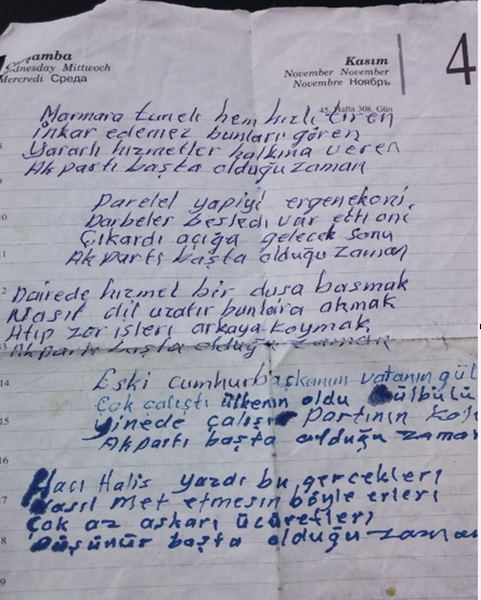 şamba
Wednesday Mittwoch
Mercredi Среда
Kasım
November November
Novembre Ноябрь
4
45. Hafta 308. Gün
Marmara tuneli hem hızlı tiren
inkar edemez bunları gören
Yararlı hizmetler halkına veren
Ak parti başta olduğu zaman
Parelel yapiyi ergenekoni,
Darbeler besledi var etti oni
Çıkardı açığa gelecek sonu
Ak parti başta olduğu zaman
Dairede hizmet bir dusa basmak
Nasıl dil uzatır bunlara ahmak
Atıp zor işleri arkaya koymak
Akparti başta olduğu zaman
Eski cumhurbaşkanım vatanın gül
Çok çalıştı ülkenin oldu bülbülü
yinede çalışır partinin
Akparti başta olduğu zaman
Hacı Halis yazdı bu gerçekleri
Nasıl met etmesin böyle erleri
Çok az askari ücüretleri
Düşünür başta olduğu zaman